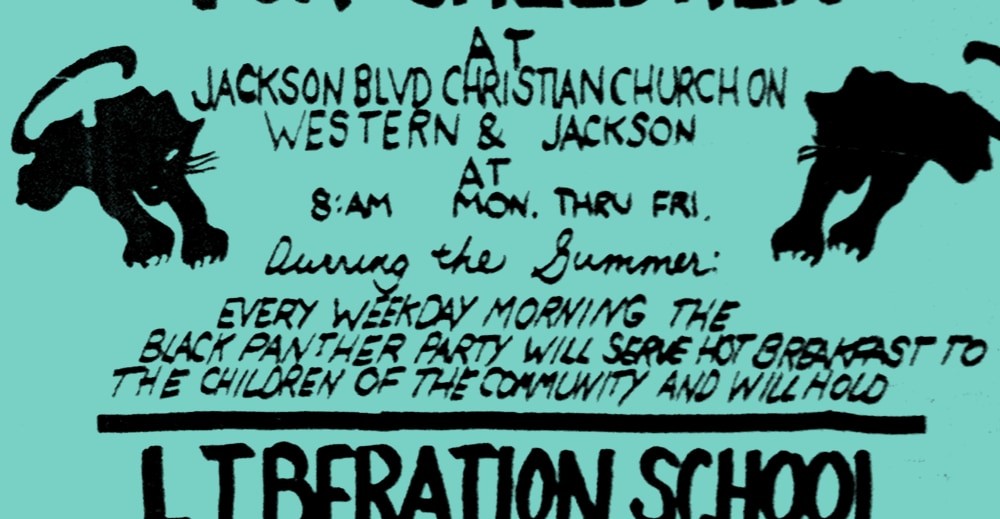 FOR CHILDREN
AT
JACKSON BLVD CHRISTIAN CHURCH ON
WESTERN & JACKSON
AT
8:AM MON. THRU FRI.
Durring the Summer:
EVERY WEEKDAY MORNING THE
BLACK PANTHER PARTY WILL SERVE HOT BREAKFAST TO
THE CHILDREN OF THE COMMUNITY AND WILL HOLD
LIBERATION SCHOOL